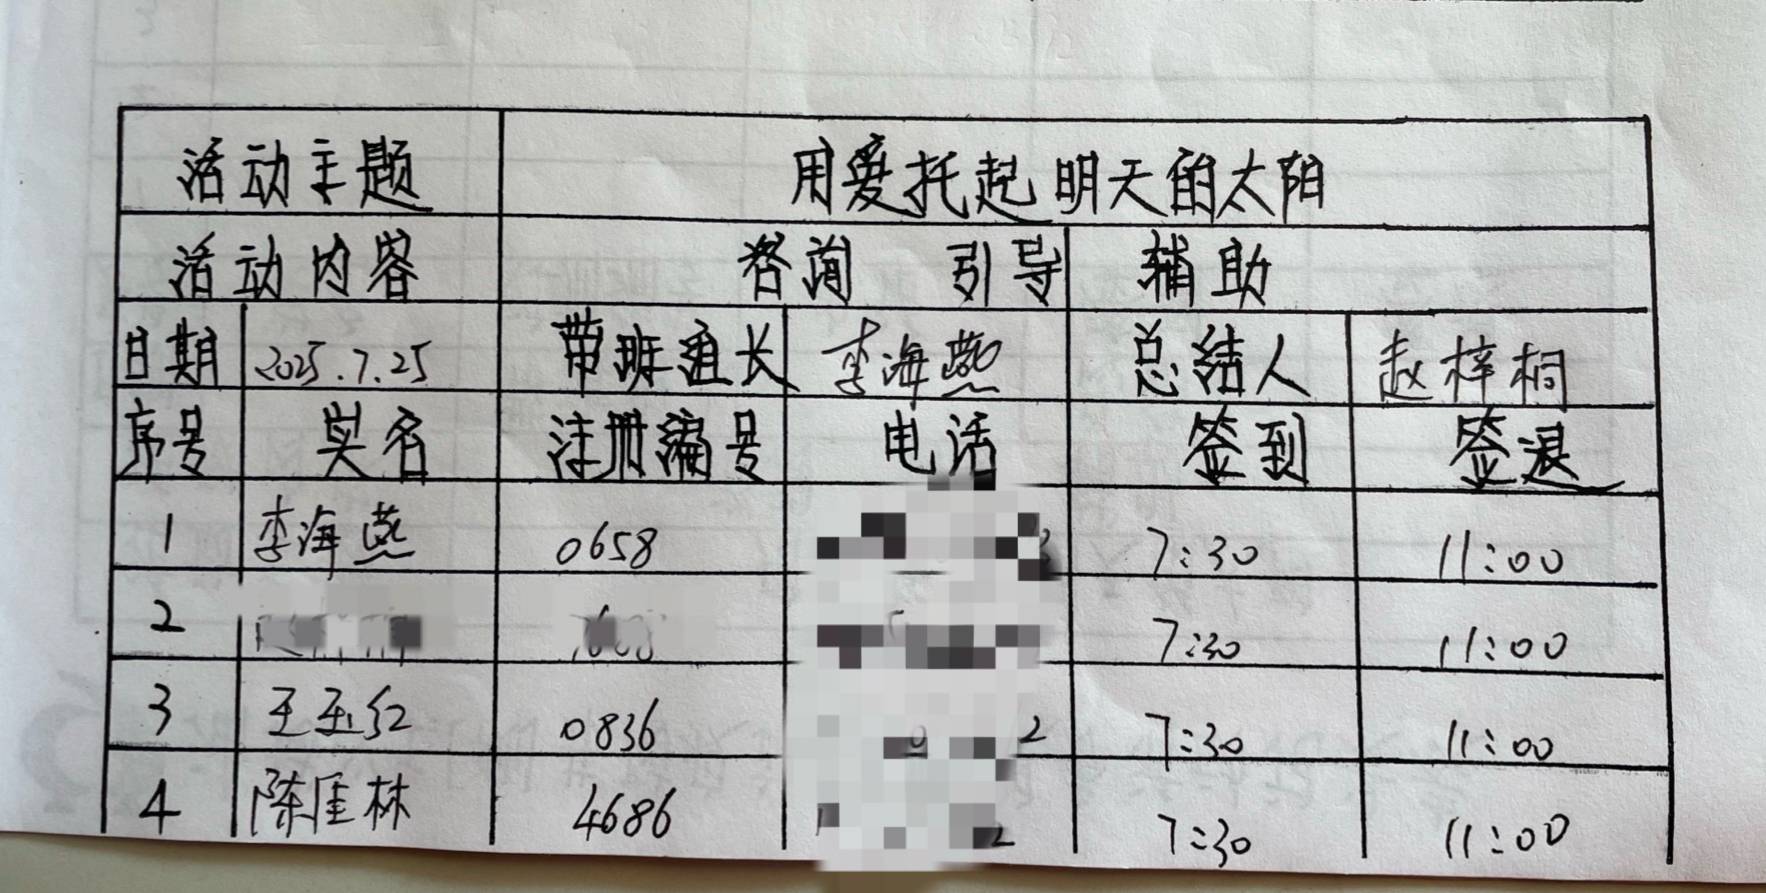 活动主题 用爱托起明天的太阳
活动内容 咨询 引导 辅助
日期 2025.7.25 带班组长 李海燕 总结人 赵梓桐
序号 姓名 注册编号 电话 签到 签退
1 李海燕 0658 7:30 11:00
2 7:30 11:00
3 王玉红 0836 2 7:30 11:00
4 陈佳林 4686 2 7:30 11:00